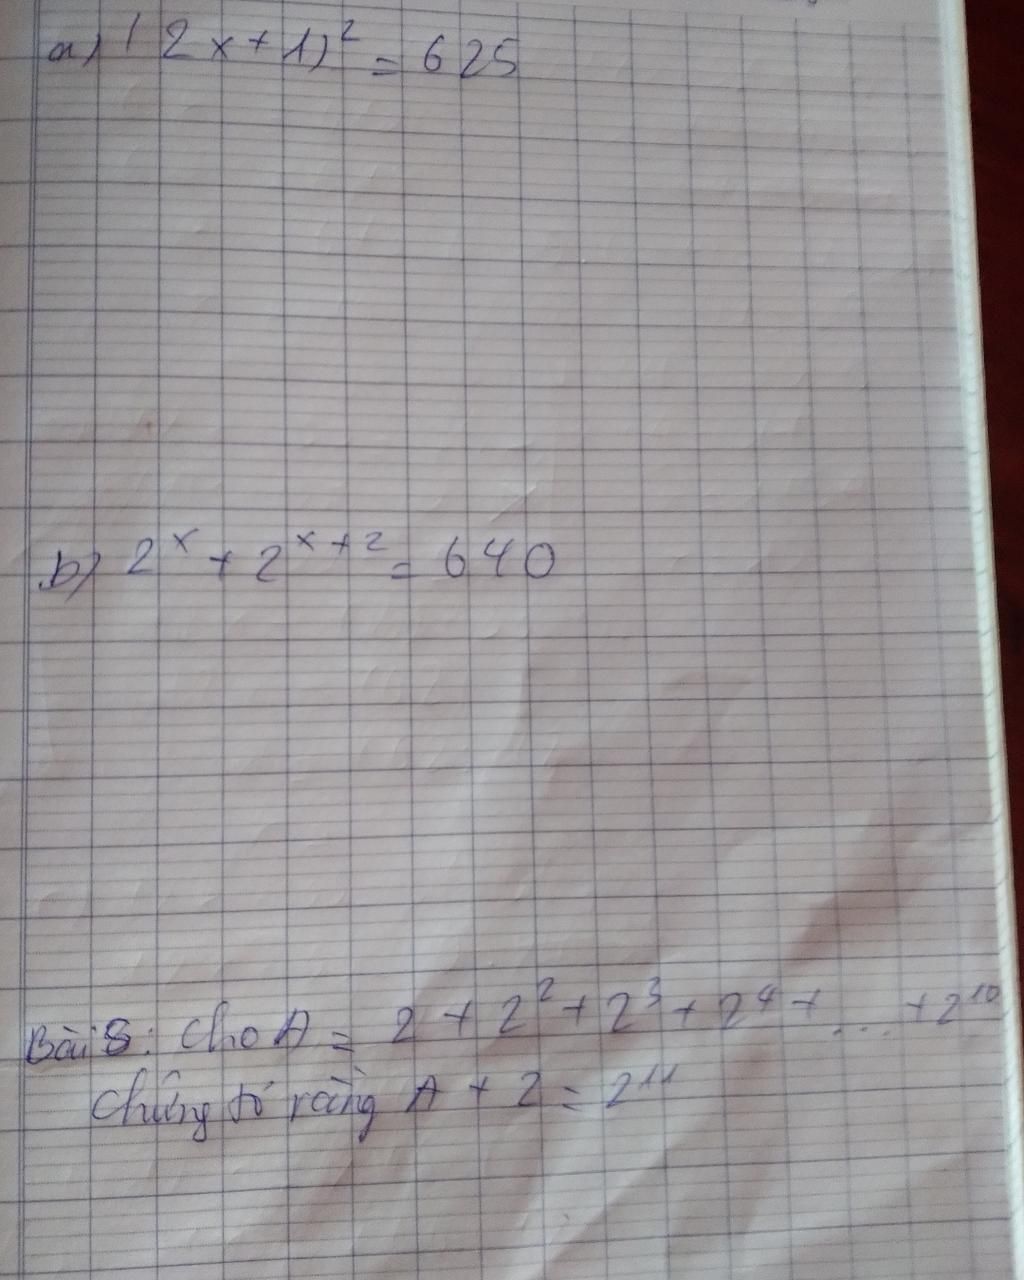 a) (2x+1)² = 625
b) 2ˣ + 2ˣ⁺² = 640
Bài 8: Cho A = 2 + 2² + 2³ + 2⁴ + ... + 2¹⁰
Chứng tỏ rằng A + 2 = 2¹¹